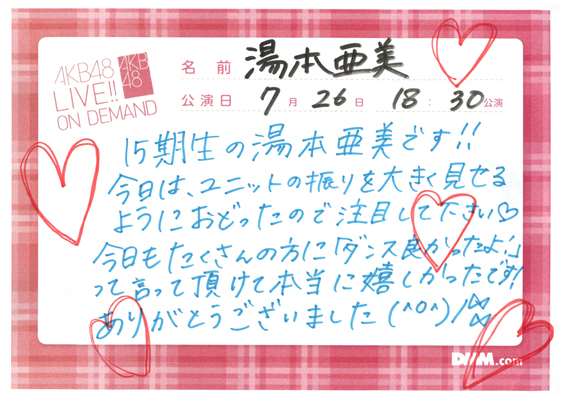 AKB48
LIVE!!
ON DEMAND
AKB
48
名前 湯本亜美
公演日 7月 26日 18:30公演
15期生の湯本亜美です!!
今日は、ユニットの振りを大きく見せる
ようにおどったので注目して下さい♡
今日もたくさんの方に「ダンス良かったよ!」
って言って頂けて本当に嬉しかったです!
ありがとうございました(^o^)/
DMM.com